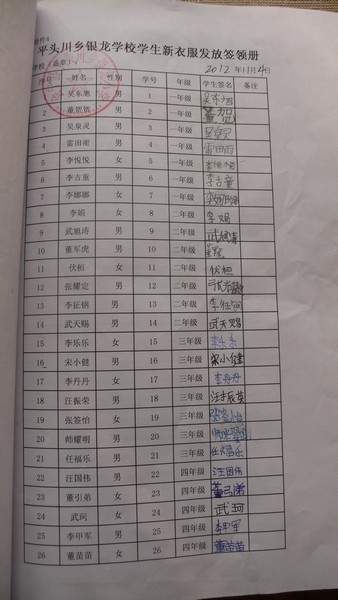 附件4
平头川乡银龙学校学生新衣服发放签领册
学校（盖章） 2012年11月4日
序号 姓名 性别 学号 年级 学生签名 备注
1 吴东旭 男 1 一年级
2 董贺贺 男 2 一年级 董贺
3 吴泉灵 男 3 一年级 吴泉灵
4 雷田雨 男 4 一年级 雷田雨
5 李悦悦 女 5 一年级 李悦悦
6 李古董 男 6 一年级 李古董
7 李娜娜 女 7 一年级 李娜娜
8 李娟 女 8 二年级 李娟
9 武旭涛 男 9 二年级 武旭涛
10 董军虎 男 10 二年级
11 伏桓 女 11 二年级 伏桓
12 张耀定 男 12 二年级
13 李征钢 男 13 二年级 李征钢
14 武天赐 男 14 二年级 武天赐
15 李乐乐 女 15 三年级 李乐乐
16 宋小健 男 16 三年级 宋小健
17 李丹丹 女 17 三年级 李丹丹
18 汪振荣 男 18 三年级 汪振荣
19 张签怡 女 19 三年级 张签怡
20 帅耀明 男 20 三年级
21 任福乐 男 21 三年级 任福乐
22 汪国伟 男 22 四年级 汪国伟
23 董引弟 女 23 四年级 董引弟
24 武珂 女 24 四年级 武珂
25 李甲军 男 25 四年级 李甲军
26 董苗苗 女 26 四年级 董苗苗